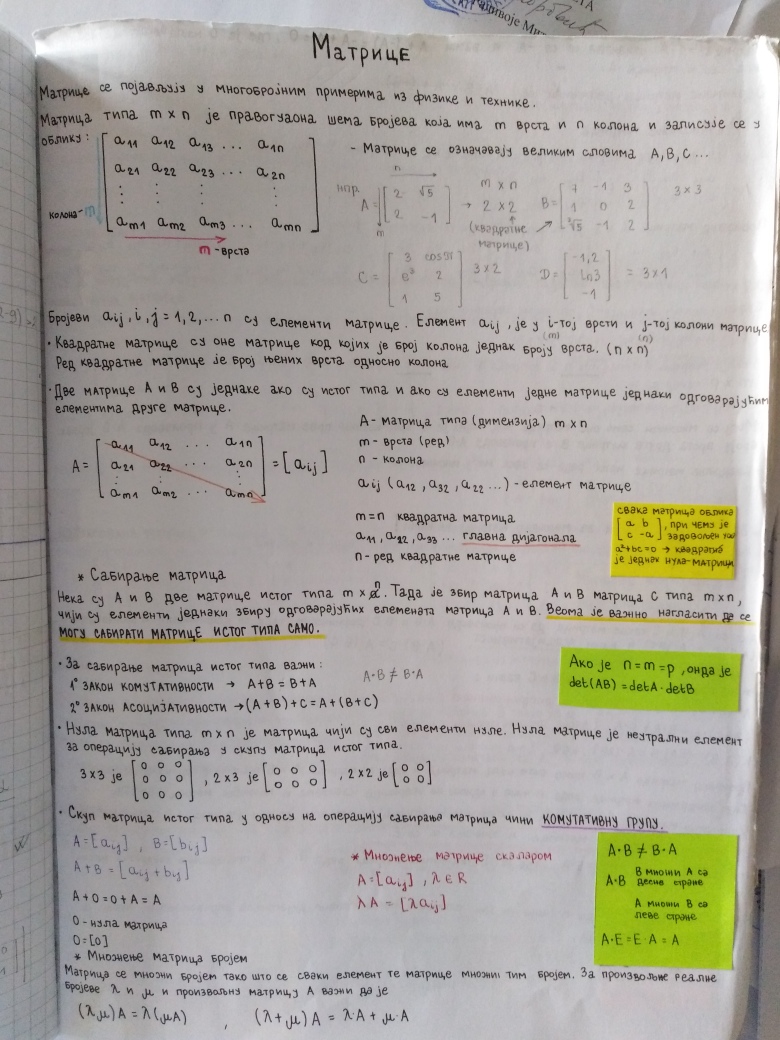 Матрице
Матрице се појављују у многобројним примерима из физике и технике.
Матрица типа m x n је правоугаона шема бројева која има m врста и n колона и записује се у
облику:
[ a11 a12 a13 ... a1n
a21 a22 a23 ... a2n
⋮ ⋮ ⋮ ⋮
am1 am2 am3 ... amn ]
колона-m
m - врста
- Матрице се означавају великим словима A, B, C ...
нпр. A = [ 2 √5
2 -1 ]
n
m
m x n
→ 2 x 2
(квадратне
матрице)
B = [ 7 -1 3
1 0 2
∛5 -1 2 ] 3 x 3
C = [ 3 cos π
e³ 2
1 5 ] 3 x 2
D = [ -1,2
ln3
-1 ] = 3 x 1
Бројеви aij, i, j = 1, 2, ... n су елементи матрице. Елемент aij, је у i-тој врсти и j-тој колони матрице
(m) (n)
· Квадратне матрице су оне матрице код којих је број колона једнак броју врста. (n x n)
Ред квадратне матрице је број њених врста односно колона
· Две матрице A и B су једнаке ако су истог типа и ако су елементи једне матрице једнаки одговарајућим
елементима друге матрице.
A = [ a11 a12 ... a1n
a21 a22 ... a2n
⋮ ⋮
am1 am2 ... amn ] = [aij]
A - матрица типа (димензија) m x n
m - врста (ред)
n - колона
aij (a12, a32, a22 ...) - елемент матрице
m = n квадратна матрица
a11, a22, a33 ... главна дијагонала
n - ред квадратне матрице
свака матрица облика
[ a b
c -a ], при чему је
задовољен
a²+bc=0 → квадрат
је једнак нула-матрици
* Сабирање матрица
Нека су A и B две матрице истог типа m x n. Тада је збир матрица A и B матрица C типа m x n,
чији су елементи једнаки збиру одговарајућих елемената матрица A и B. Веома је важно нагласити да се
могу сабирати матрице истог типа само.
· За сабирање матрица истог типа важи:
1° закон комутативности → A+B = B+A
A·B ≠ B·A
2° закон асоцијативности → (A+B)+C = A+(B+C)
Ако је n = m = p, онда је
det(AB) = detA · detB
· Нула матрица типа m x n је матрица чији су сви елементи нуле. Нула матрице је неутрални елемент
за операцију сабирања у скупу матрица истог типа.
3 x 3 је [ 0 0 0
0 0 0
0 0 0 ], 2 x 3 је [ 0 0 0
0 0 0 ], 2 x 2 је [ 0 0
0 0 ]
· Скуп матрица истог типа у односу на операцију сабирања матрица чини комутативну групу.
A = [aij], B = [bij]
A + B = [aij + bij]
A + 0 = 0 + A = A
0 - нула матрица
0 = [0]
* Множење матрице скаларом
A = [aij], λ ∈ R
λA = [λaij]
A·B ≠ B·A
A·B В множи A са
десне стране
A множи B са
леве стране
A·E = E·A = A
* Множење матрица бројем
Матрица се множи бројем тако што се сваки елемент те матрице множи тим бројем. За произвољне реалне
бројеве λ и μ и произвољну матрицу A важи да је
(λμ)A = λ(μA) , (λ+μ)A = λ·A + μ·A